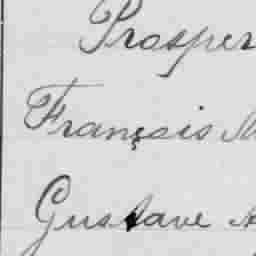 Prosper
François
Gustave